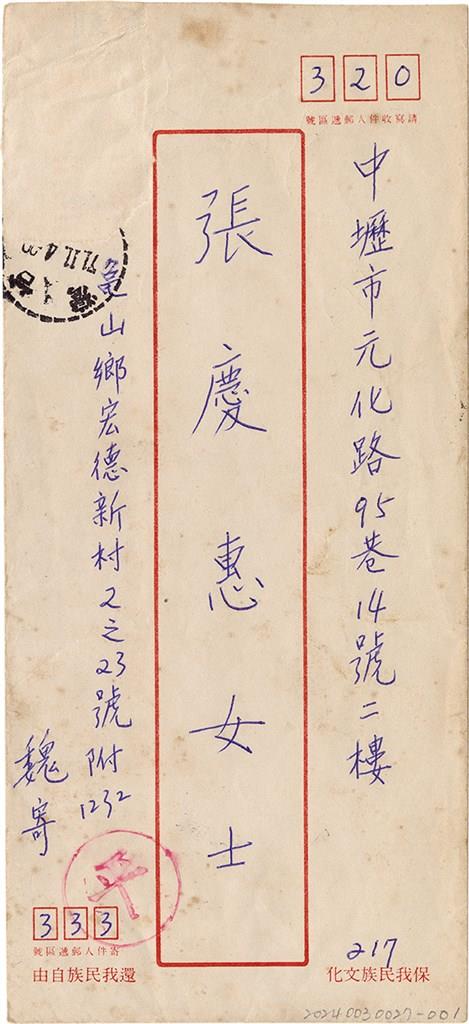 320
請寫收件人郵遞區號
中壢市元化路95巷14號二樓
張慶惠女士
山鄉宏德新村2之23號附1232
魏寄
平
333
寄件人郵遞區號
還我民族自由
保我民族文化
217
71.11.4
20240030027-001